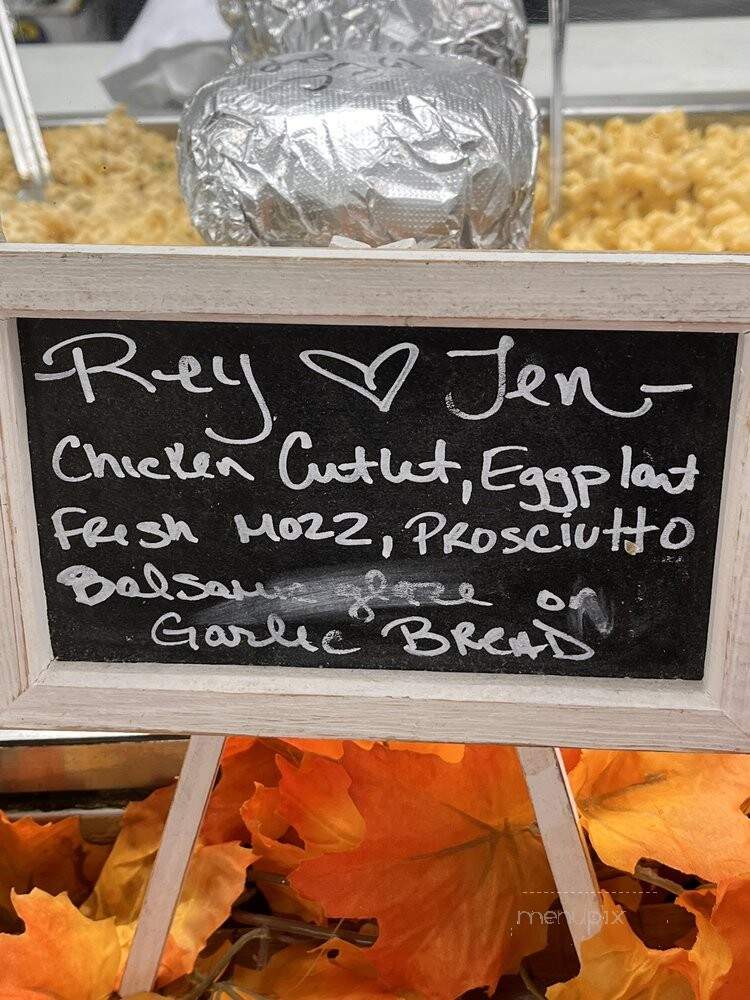 Rey ♡ Jen -
Chicken Cutlet, Eggplant
Fresh Mozz, Prosciutto
Balsamic glaze on
Garlic BREAD
menupix